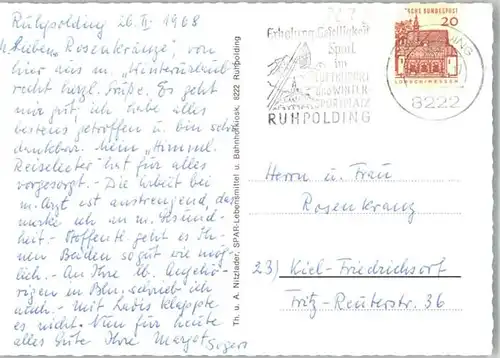 Ruhpolding 26.II. 1968
M. lieben Rosenkränze! von
hier aus m. "Winterurlaub
recht herzl. Grüße. Es geht
mir gut, ich habe alles
bestens getroffen u. bin sehr
dankbar. mein "Himml.
Reiseleiter" hat für alles
vorgesorgt. - Die Arbeit bei
m. Arzt ist anstrengend, das
merke ich an m. Gesund-
heit. - Hoffentl. geht es Ih-
nen Beiden so gut wie mög-
lich. - An Ihre lb. Angehö-
rigen in Bln. schrieb ich
auch. - mit Ladis klappte
es nicht. Nun für heute
alles Gute Ihre Margot
Th. u. A. Nitzlader, SPAR-Lebensmittel u. Bahnhofkiosk, 8222 Ruhpolding
Erholung Geselligkeit
Spiel
im
LUFTKURORT
und WINTER-
SPORTPLATZ
RUHPOLDING
DEUTSCHE BUNDESPOST
20
LORSCH/HESSEN
8222
Herrn u. Frau
Rosenkranz
23) Kiel-Friedrichsort
Fritz-Reuterstr. 36